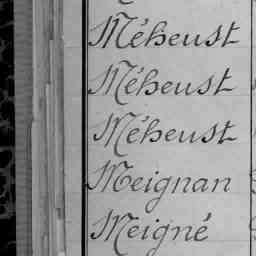 Méheust
Méheust
Méheust
Meignan
Meigné